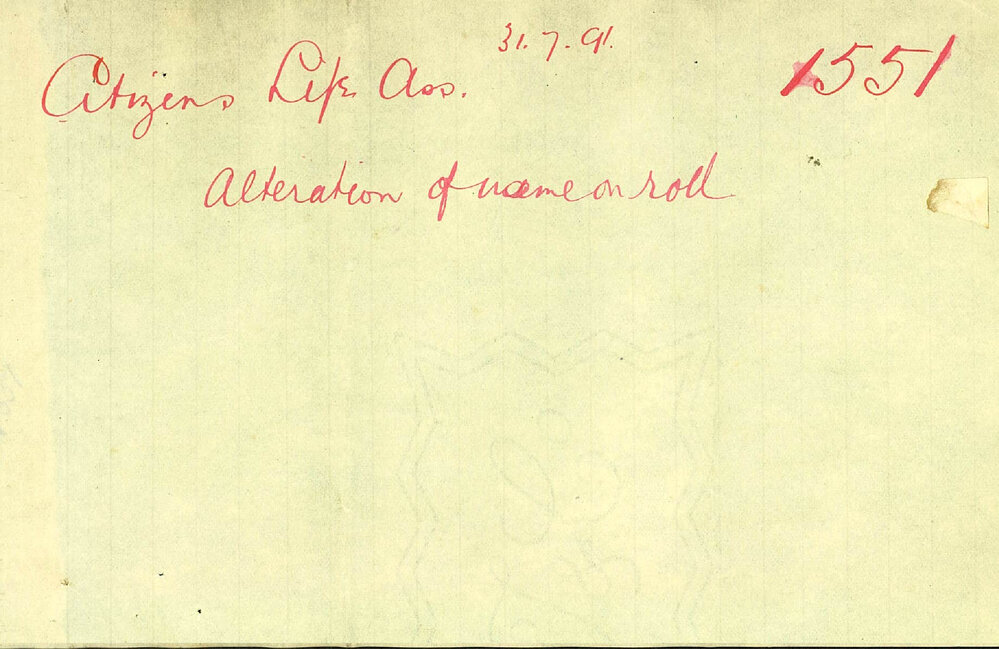 31.7.91.
Citizens Life Ass. 1551
Alteration of name on roll